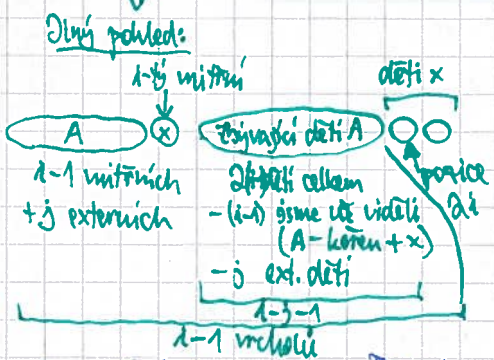 Jiný pohled:
i-tý vnitřní
děti x
A
x
Zbývající děti A
i-1 vnitřních
+j externích
dětí celkem
-(i-1) jsme už viděli
(A-kořen+x)
-j ext. děti
pozice
2i
i-j-1
i-1 vrcholů